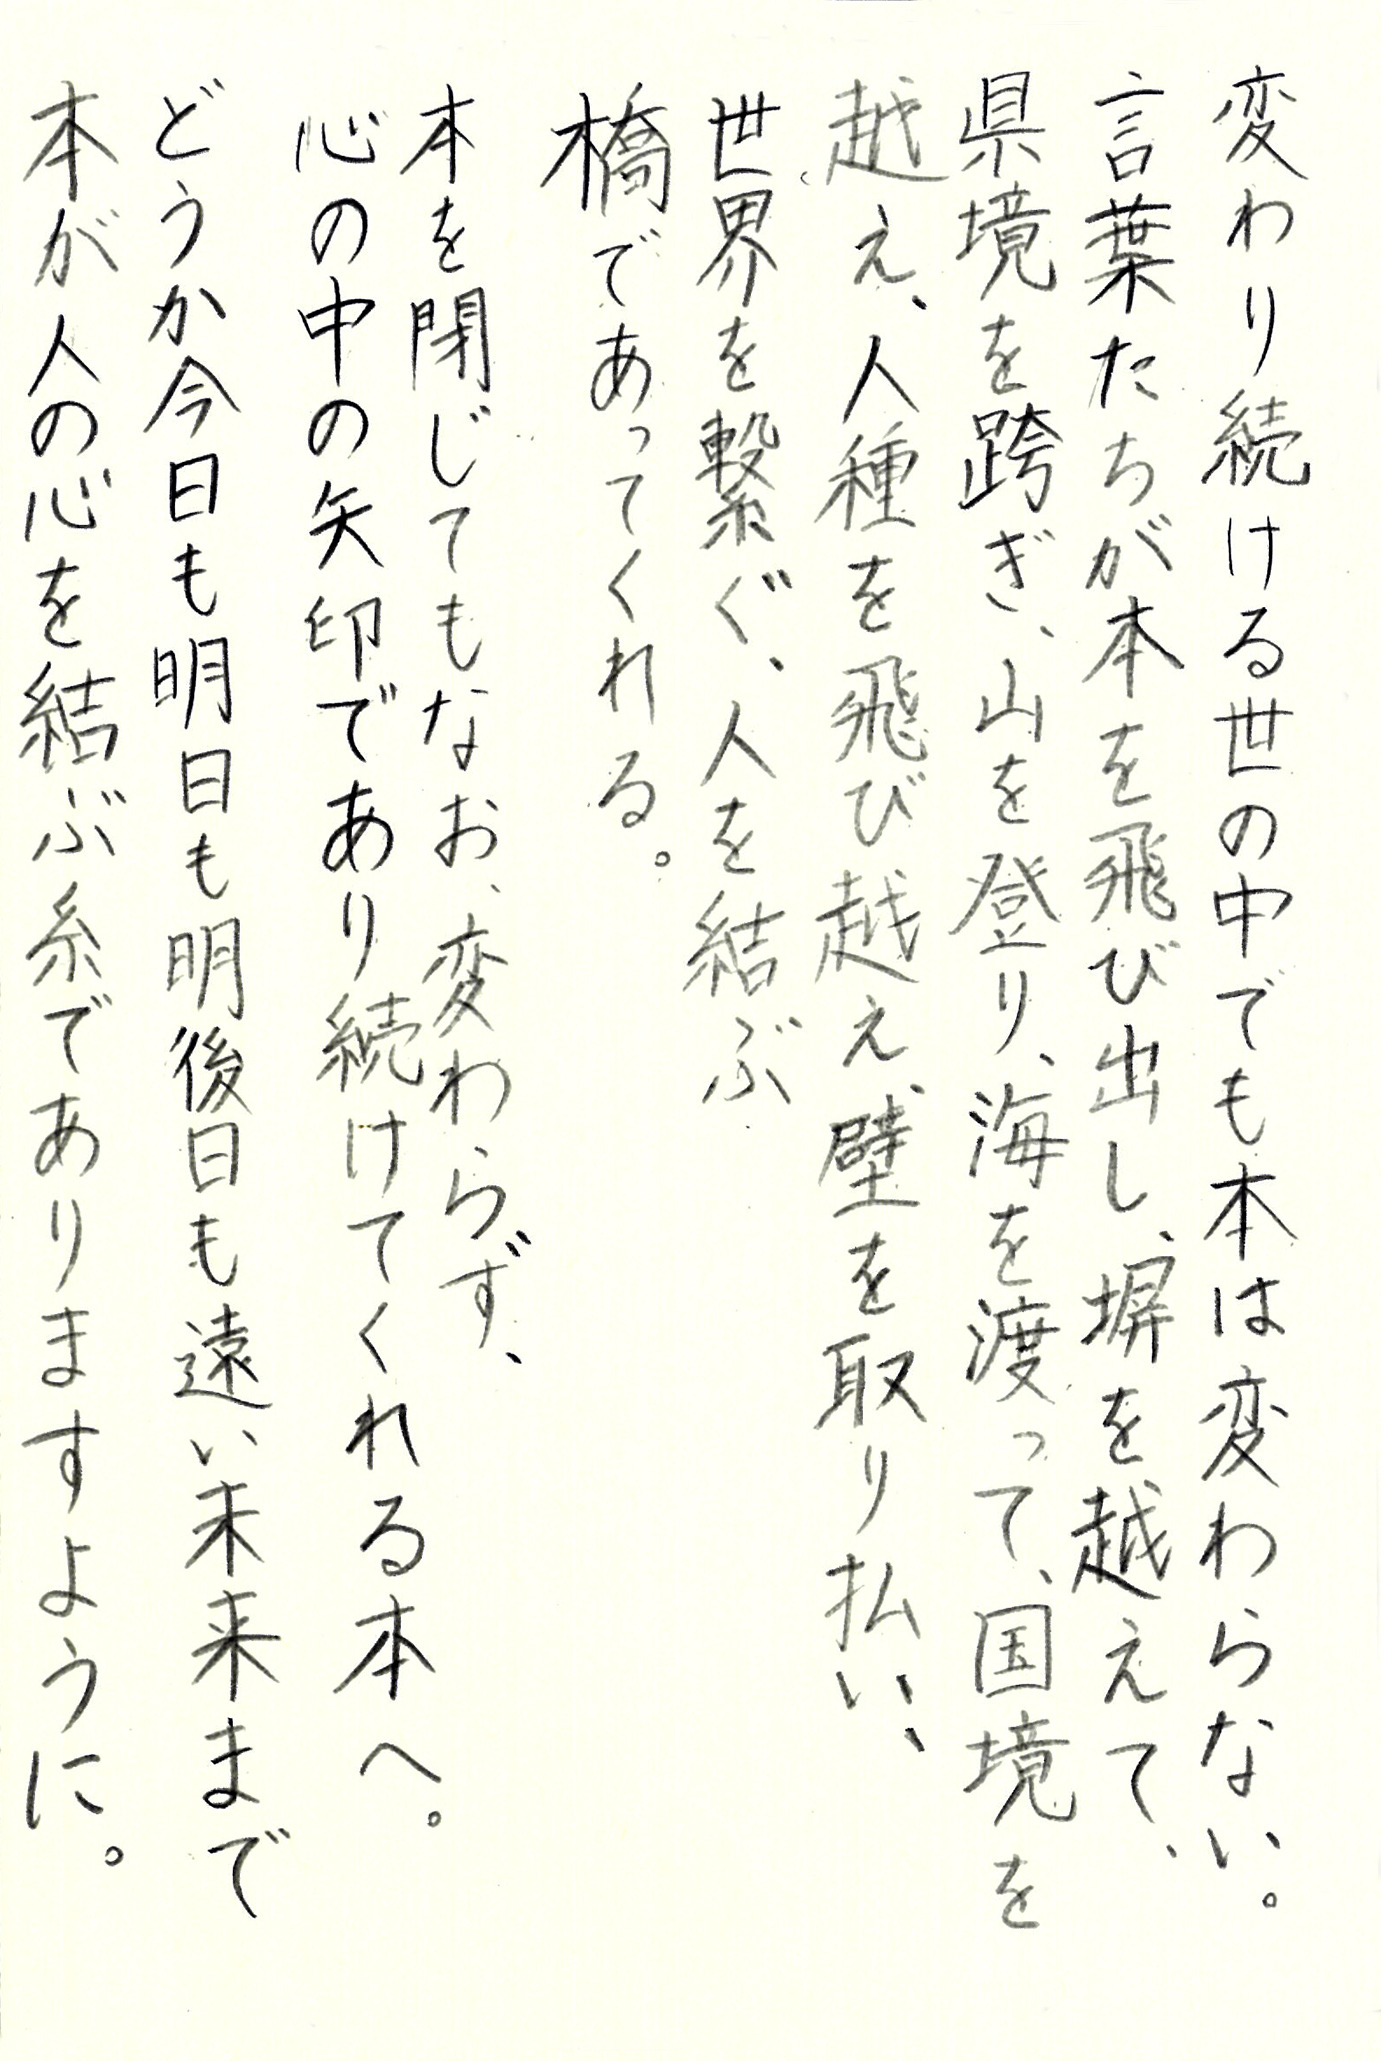 変わり続ける世の中でも本は変わらない。
言葉たちが本を飛び出し、塀を越えて、
県境を跨ぎ、山を登り、海を渡って、国境を
越え、人種を飛び越え、壁を取り払い、
世界を繋ぐ、人を結ぶ
橋であってくれる。
本を閉じてもなお、変わらず、
心の中の矢印であり続けてくれる本へ。
どうか今日も明日も明後日も遠い未来まで
本が人の心を結ぶ糸でありますように。